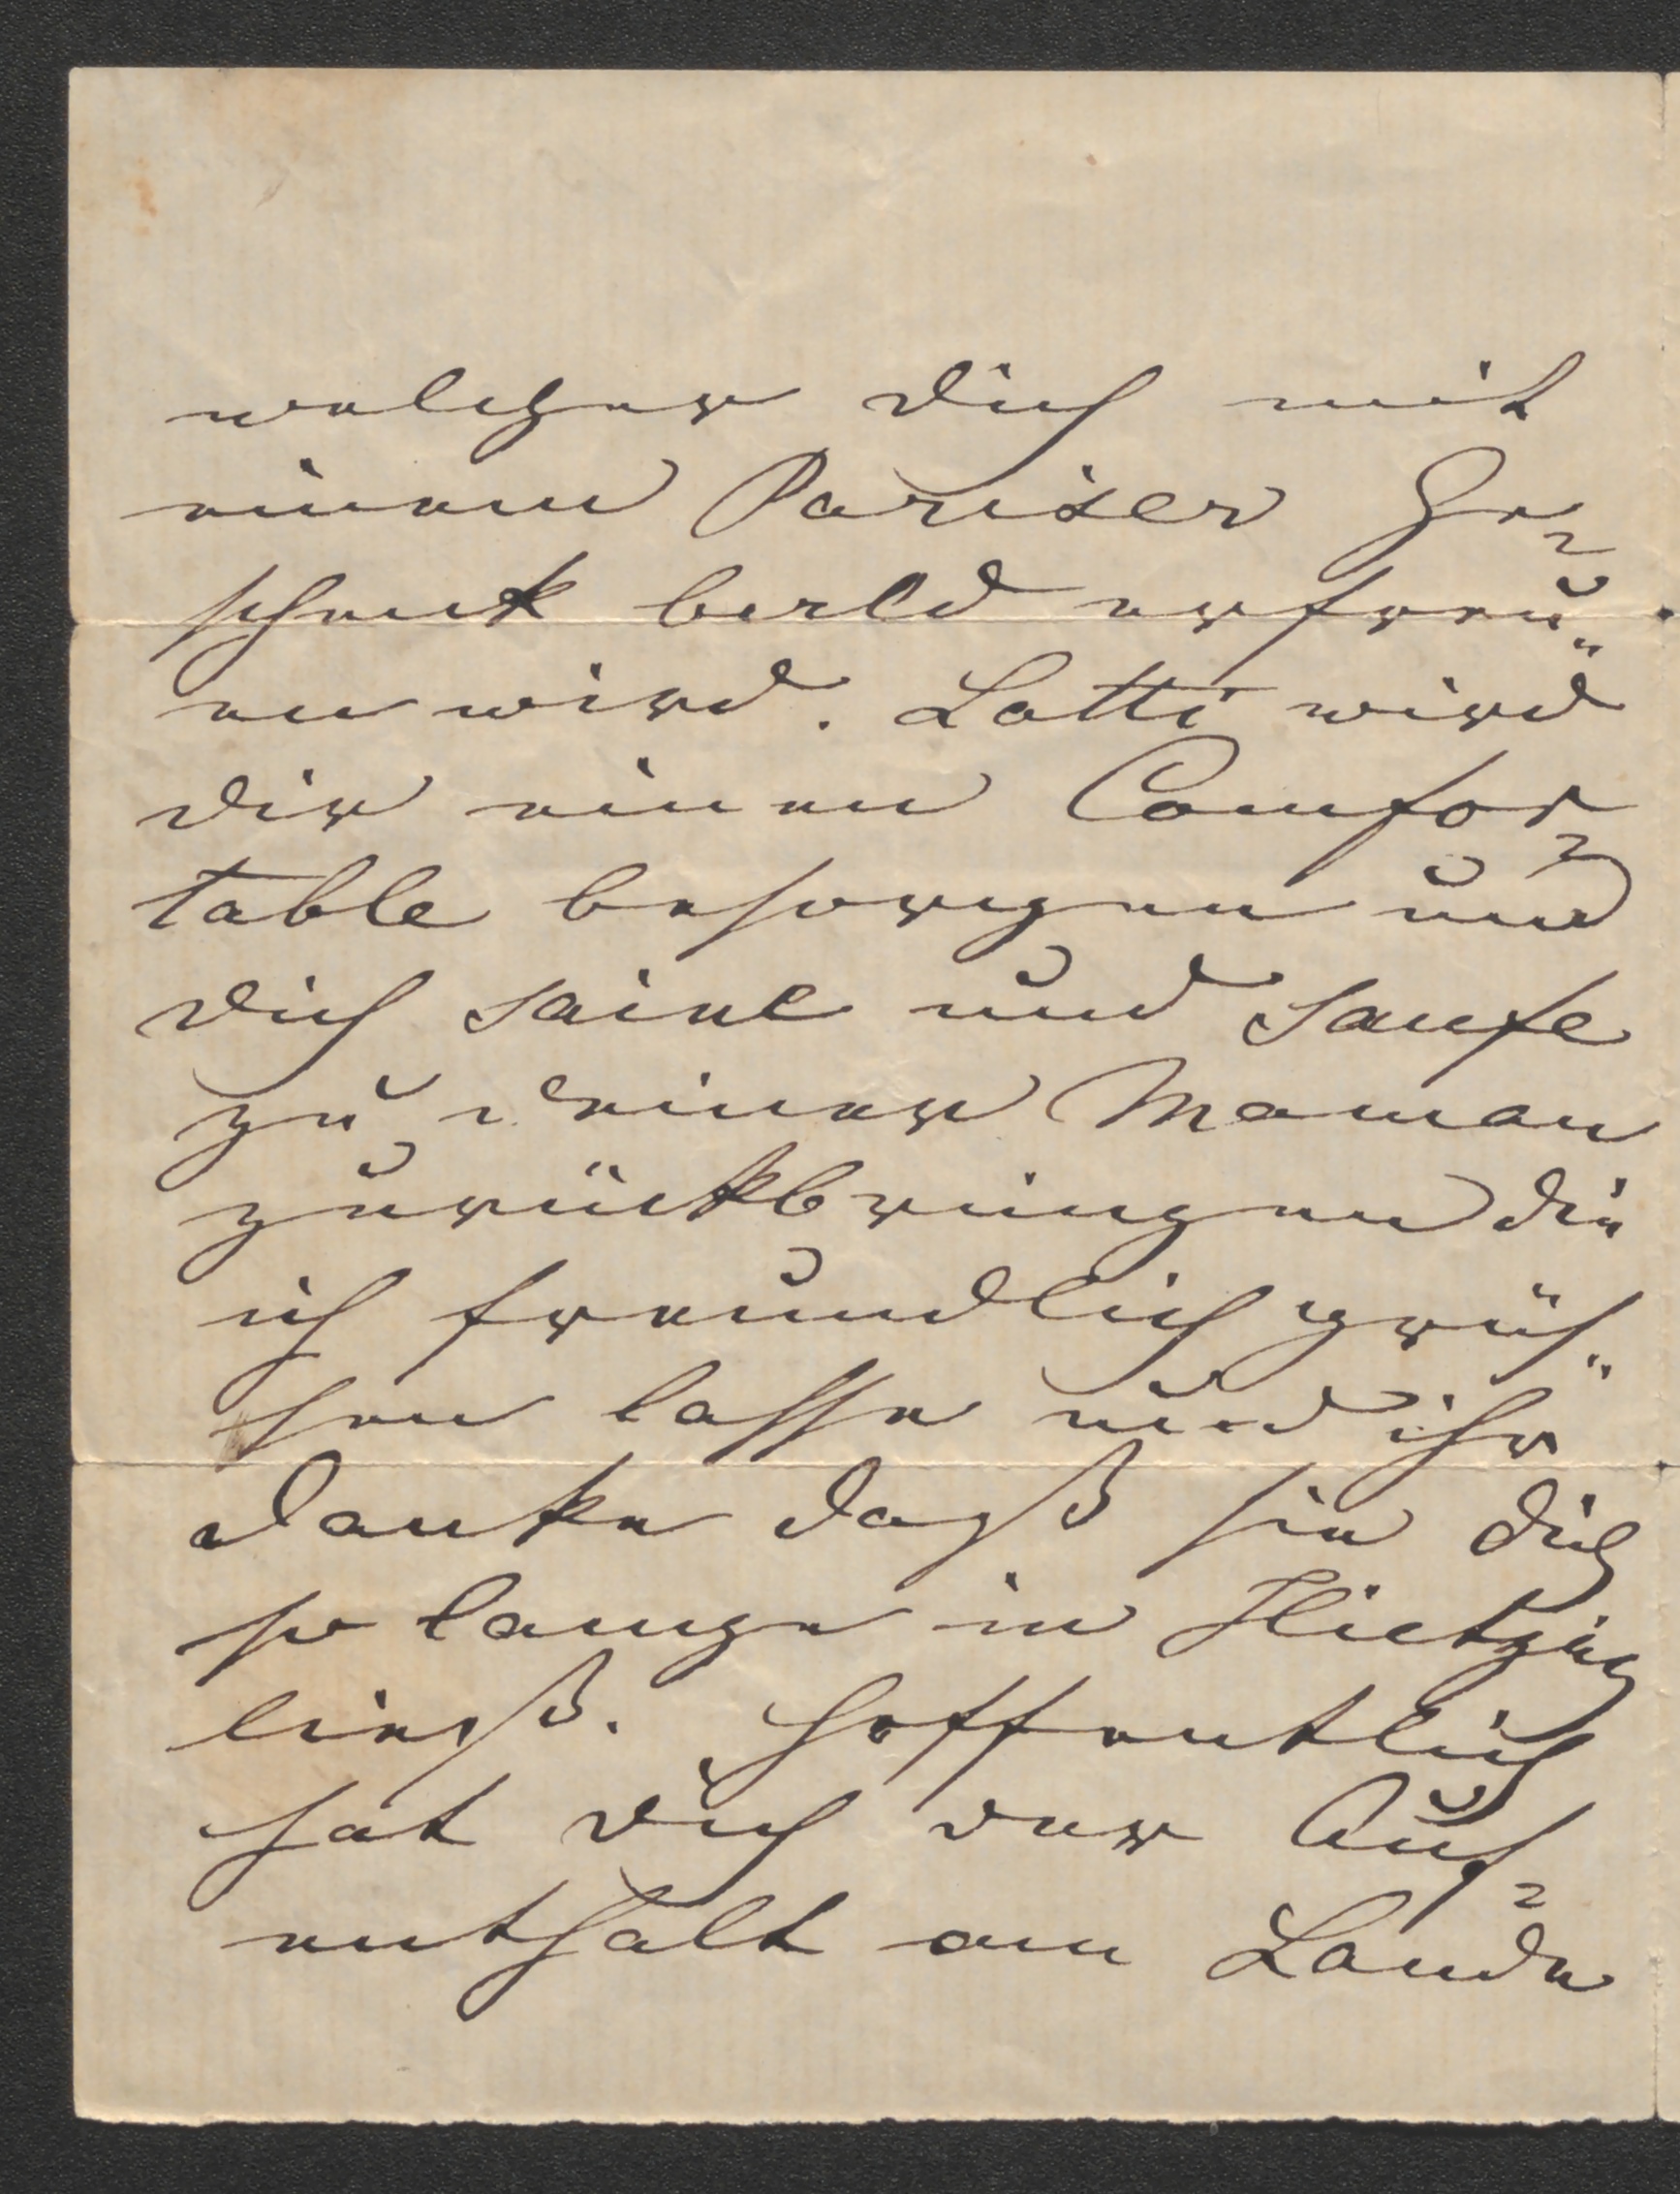 welcher dich mit
einem Pariser Ge-
schenk bald erfreu-
en wird. Lotti wird
dir einen Comfor-
table besorgen und
dich saine und saufe
zu deiner Maman
zurückbringen die
ich freundlich grüs-
sen lasse und ihr
danke daß sie dich
so lange in Hietzing
ließ. Hoffentlich
hat dich der Auf-
enthalt am Lande